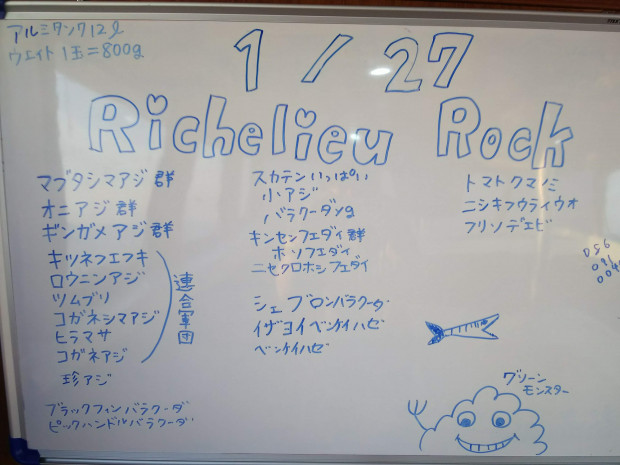 アルミタンク12ℓ
ウエイト1玉=800g
1/27
Richelieu Rock
マブタシマアジ群
オニアジ群
ギンガメアジ群
キツネフエフキ
ロウニンアジ
ツムブリ
コガネシマアジ
ヒラマサ
コガネアジ
連合軍団
珍アジ
ブラックフィンバラクーダ
ピックハンドルバラクーダ
スカテンいっぱい
小アジ
バラクーダyg
キンセンフエダイ群
ホソフエダイ
ニセクロホシフエダイ
シェブロンバラクーダ
イザヨイベンケイハゼ
ベンケイハゼ
トマトクマノミ
ニシキフウライウオ
フリソデエビ
グリーン
モンスター